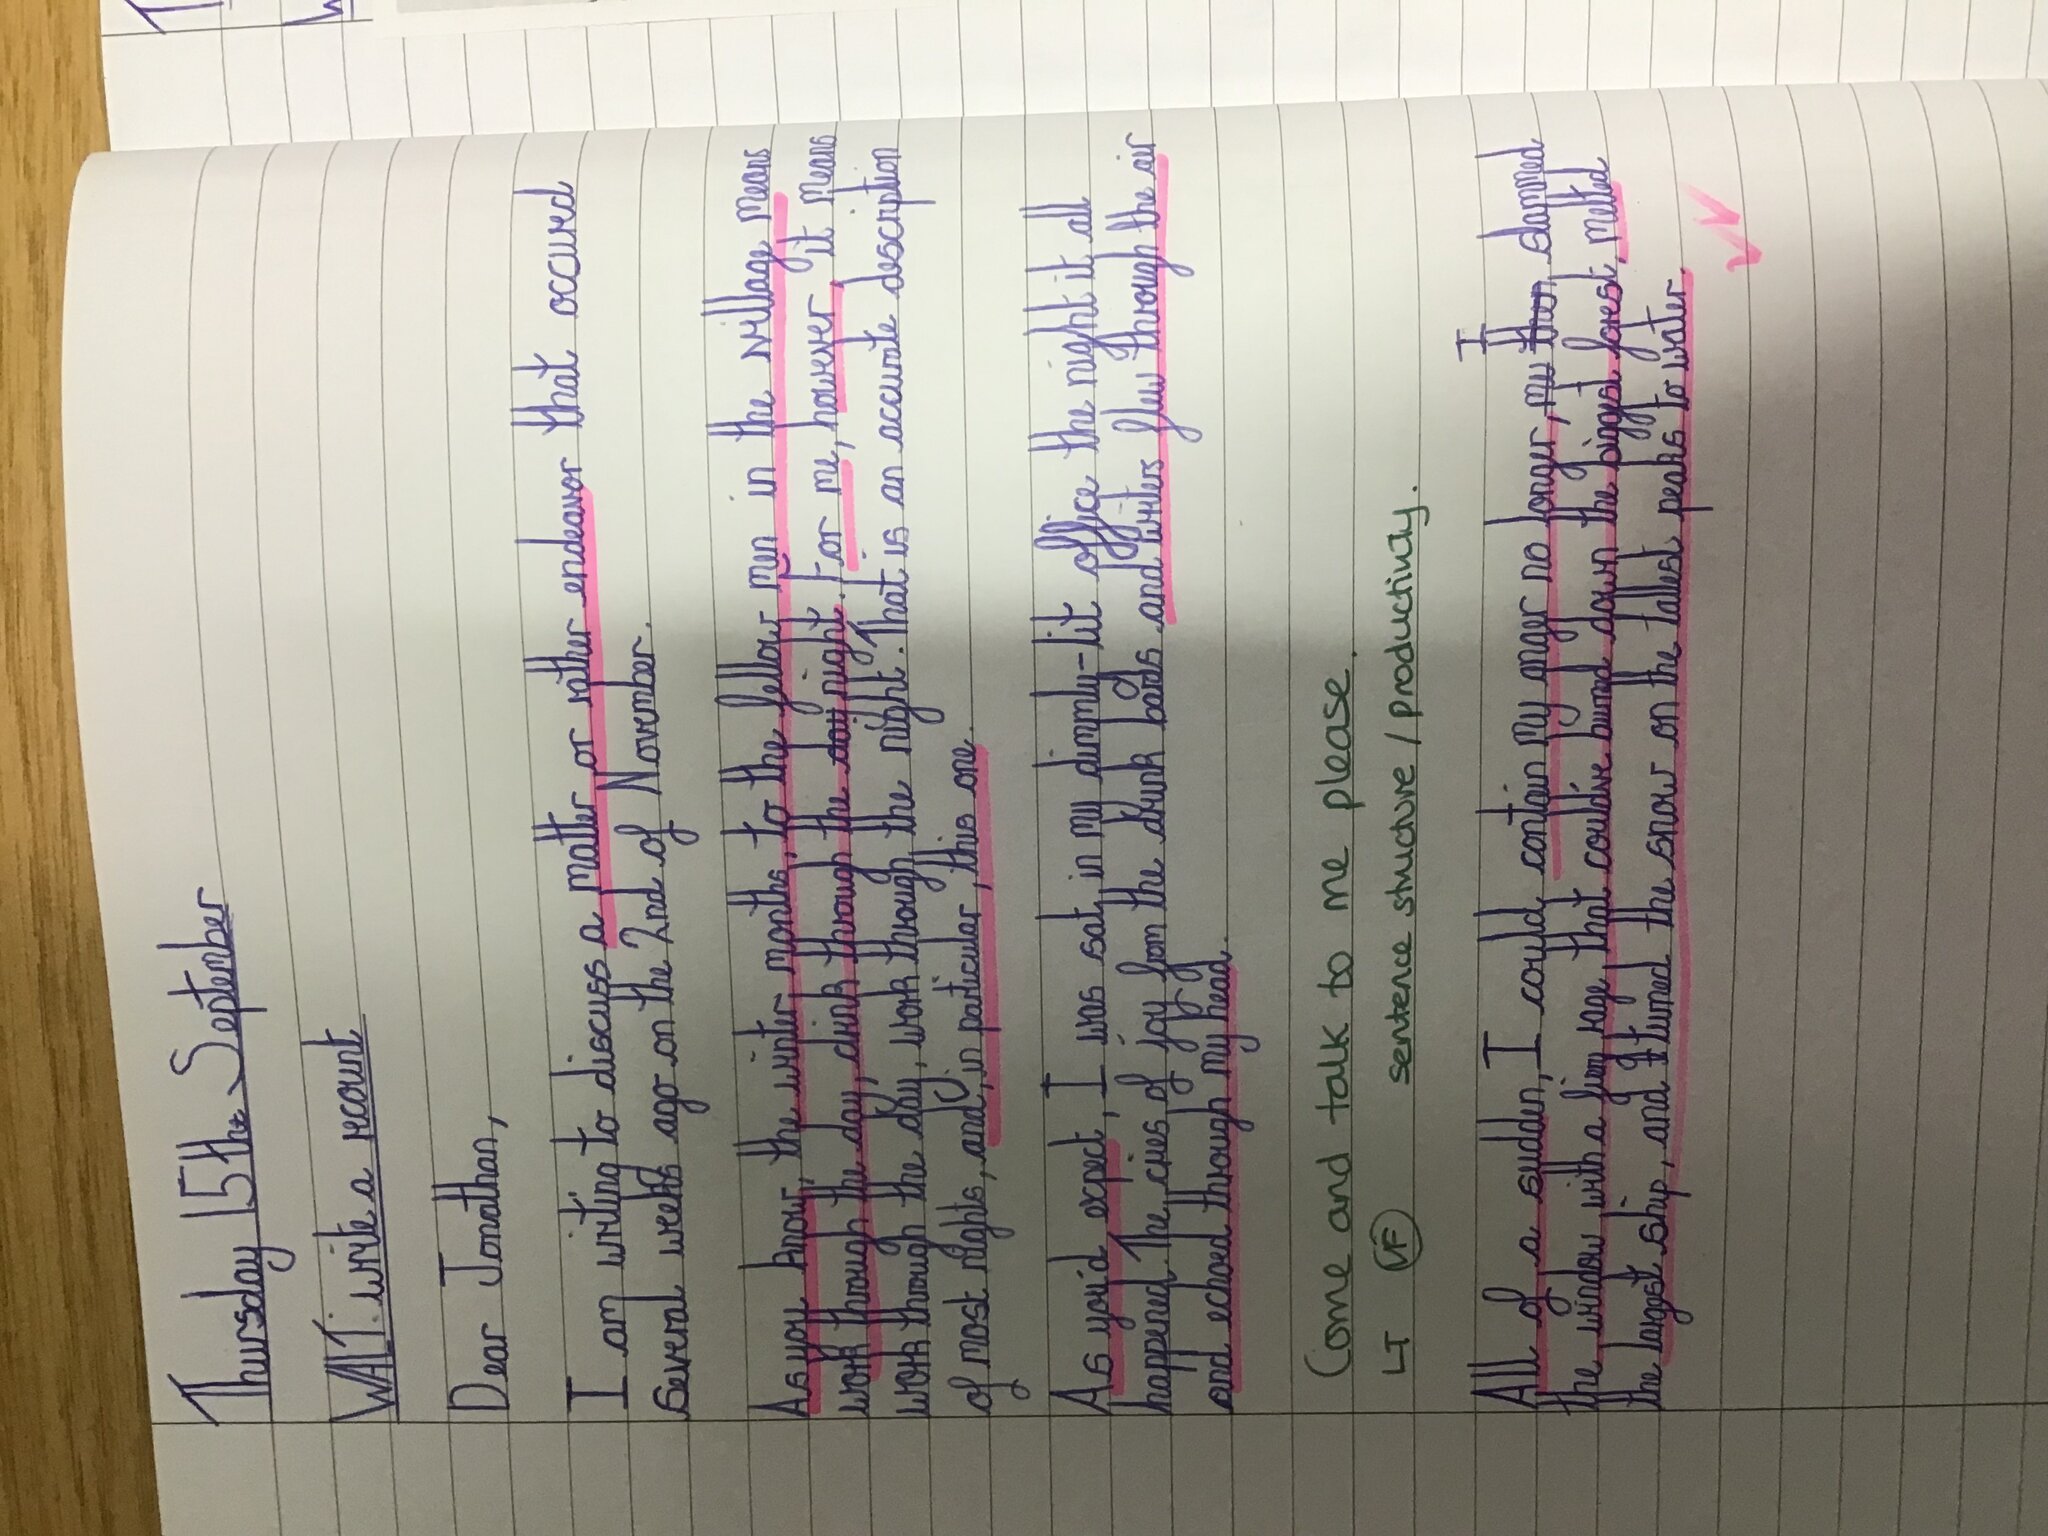 Thursday 15th September
WALT: write a recount
Dear Jonathan,
I am writing to discuss a matter or rather endeavor that occured
several weeks ago on the 2nd of November.
As you know, the winter months, to the fellow men in the village means
work through the day, drink through the day night. For me, however, it means
work through the day, work through the night. That is an accurate description
of most nights, and, in particular, this one.
As you'd expect, I was sat in my dimmly-lit office the night it all
happened. The cries of joy from the drunk bards and writers flew through the air
and echoed through my head.
Come and talk to me please.
LT VF sentence structure / productivity.
All of a sudden, I could contain my anger no longer, my then I slammed
the window with a firey rage that could've burned down the biggest forest, melted
the largest ship, and turned the snow on the tallest peaks to water.